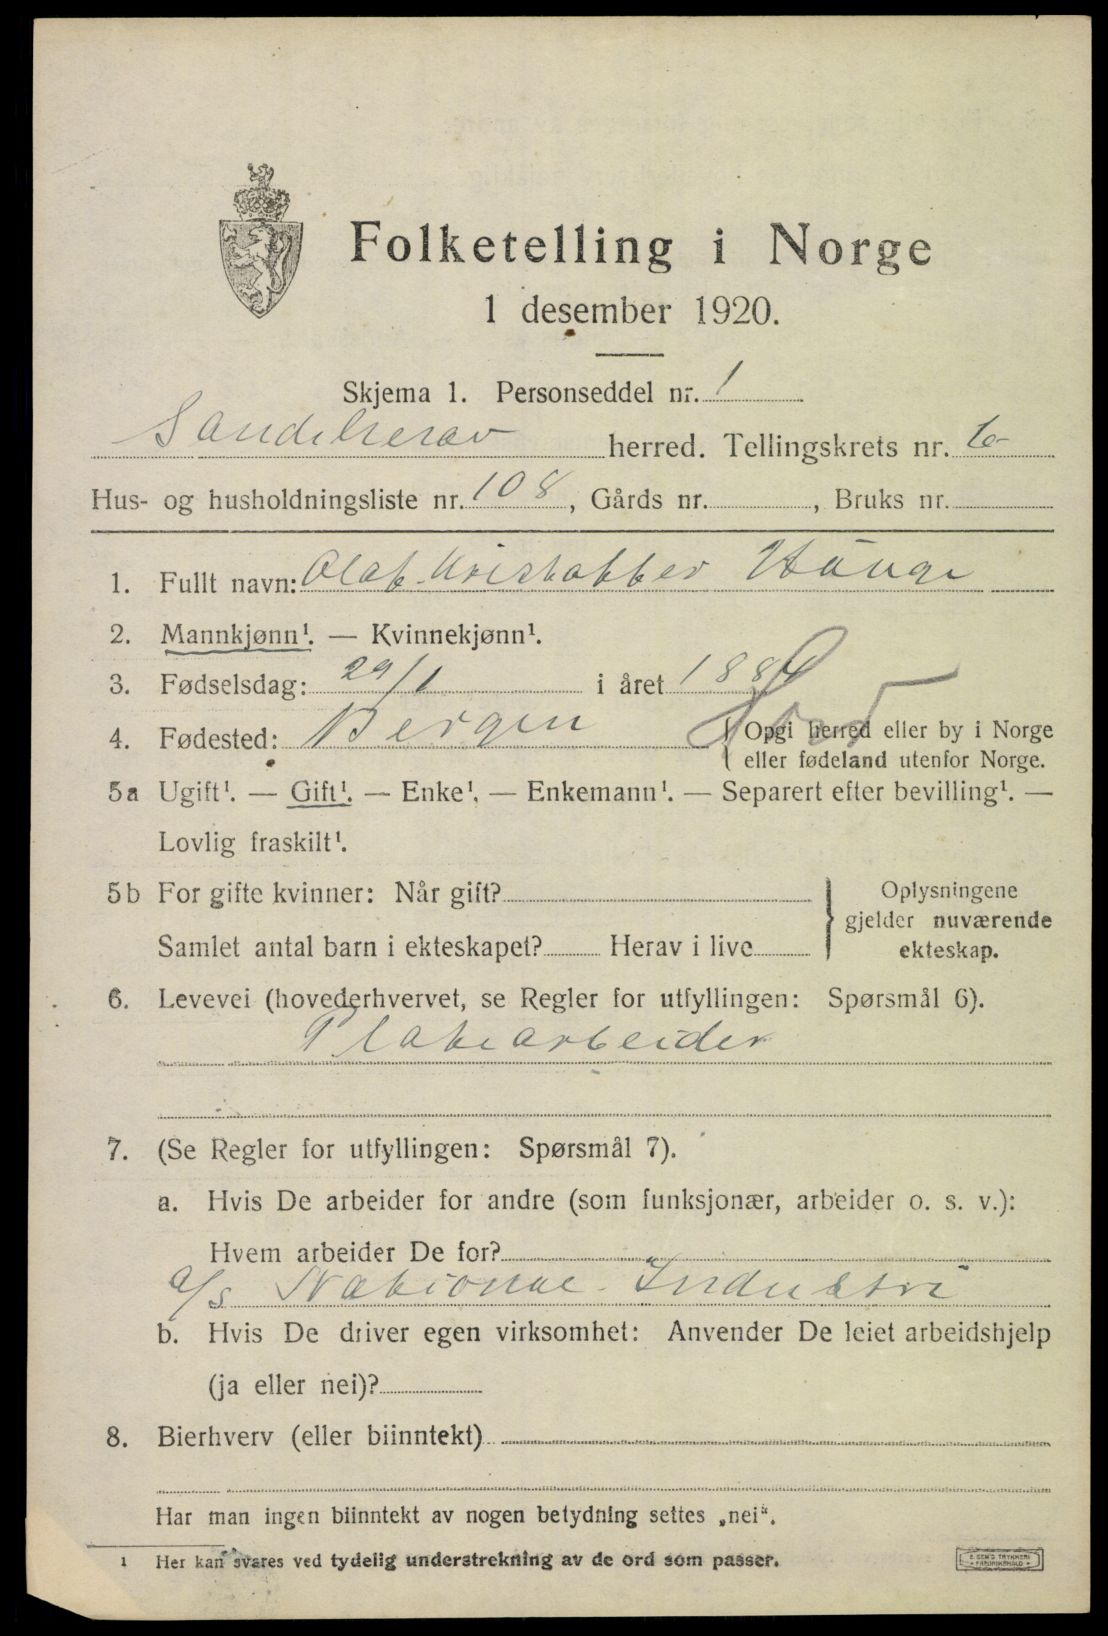 Folketelling i Norge
1 desember 1920.
Skjema 1. Personseddel nr. 1
Sandeherav herred. Tellingskrets nr. 6
Hus- og husholdningsliste nr. 108, Gårds nr. , Bruks nr.
1. Fullt navn: Olaf Kristoffer Hauge
2. Mannkjønn¹. — Kvinnekjønn¹.
3. Fødselsdag: 29/1 i året 1884
4. Fødested: Bergen { Opgi herred eller by i Norge
eller fødeland utenfor Norge.
5a Ugift¹. — Gift¹. — Enke¹. — Enkemann¹. — Separert efter bevilling¹. —
Lovlig fraskilt¹.
5b For gifte kvinner: Når gift?
Samlet antal barn i ekteskapet? Herav i live
} Oplysningene
gjelder nuværende
ekteskap.
6. Levevei (hovederhvervet, se Regler for utfyllingen: Spørsmål 6).
Platearbeider
7. (Se Regler for utfyllingen: Spørsmål 7).
a. Hvis De arbeider for andre (som funksjonær, arbeider o. s. v.):
Hvem arbeider De for?
a/s National Industri
b. Hvis De driver egen virksomhet: Anvender De leiet arbeidshjelp
(ja eller nei)?
8. Bierhverv (eller biinntekt)
Har man ingen biinntekt av nogen betydning settes „nei“.
1 Her kan svares ved tydelig understrekning av de ord som passer.
E. SEM'S TRYKKERI
FREDRIKSHALD